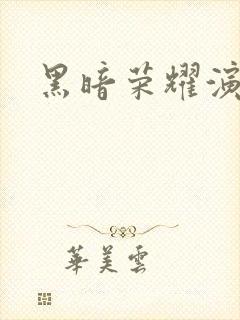 黑暗荣耀演
華美雲